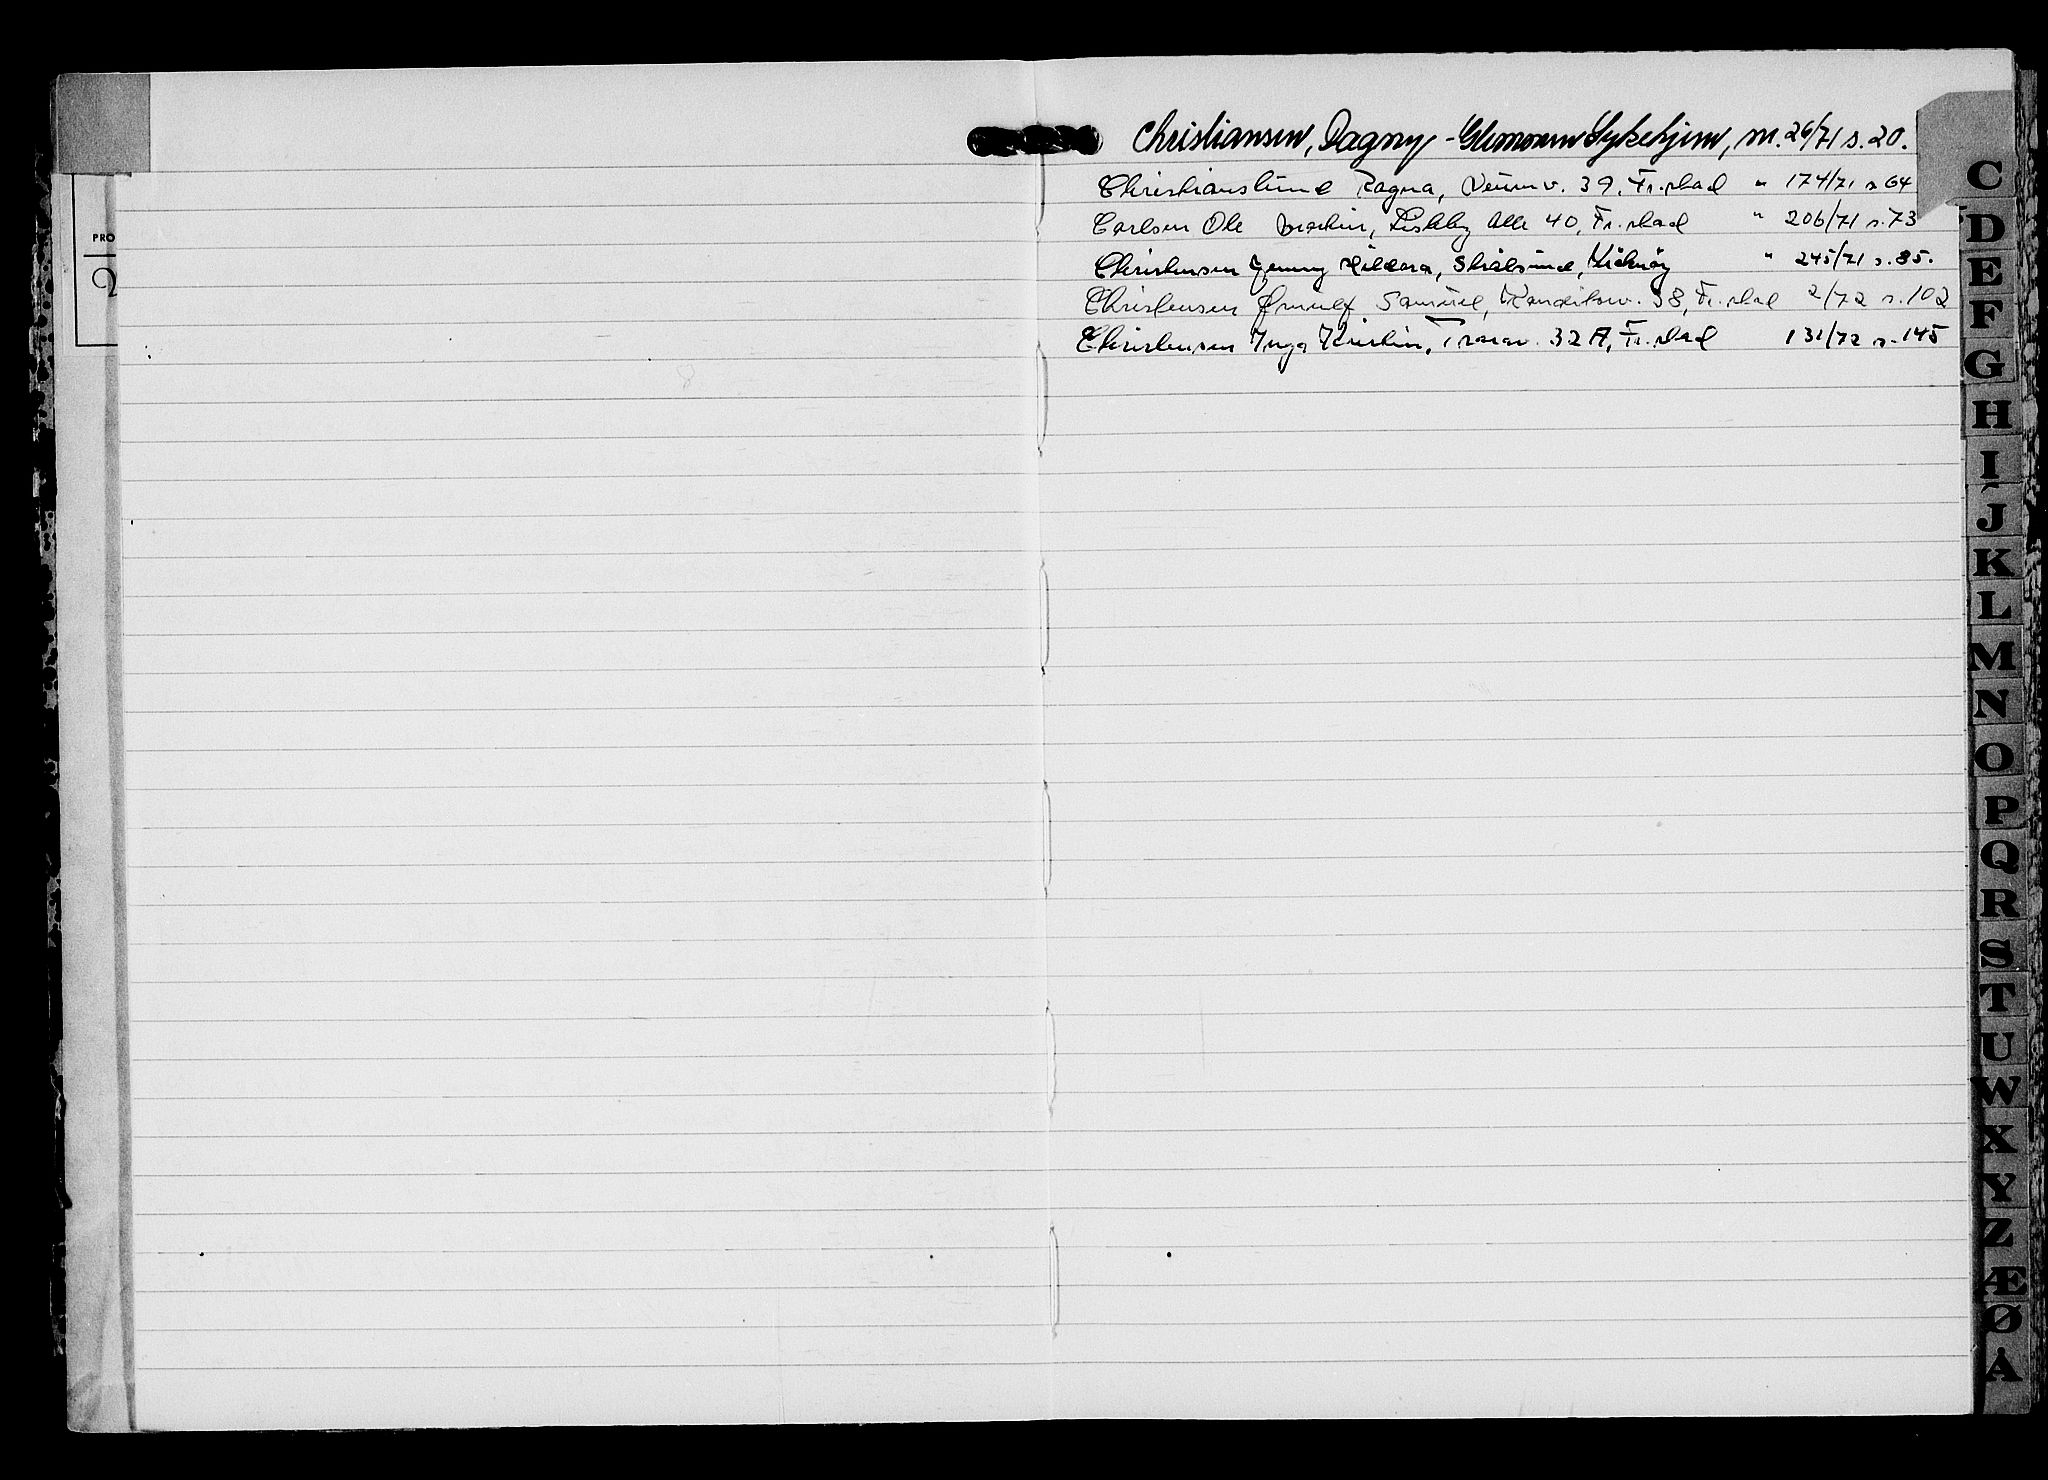 PRO
2
Christiansen, Dagny - Glemmen Sykehjem, nr. 26/71 s. 20.
Christianslund Ragna, Veumv. 39, Fr.stad " 174/71 s 64
Carlsen Ole Martin, Lisleby Alle 40, Fr.stad " 206/71 s. 73
Christensen Jenny Hildora, Skjælsund, Kirkøy " 245/71 s. 85.
Christensen Ørnulf Samuel, 38, Fr.stad 2/72 s. 102
Christensen Inga Kristin, Trarav. 32 A, Fr.stad 131/72 s. 145
C
D
E
F
G
H
I
J
K
L
M
N
O
P
Q
R
S
T
U
W
X
Y
Z
Æ
Ø
Å